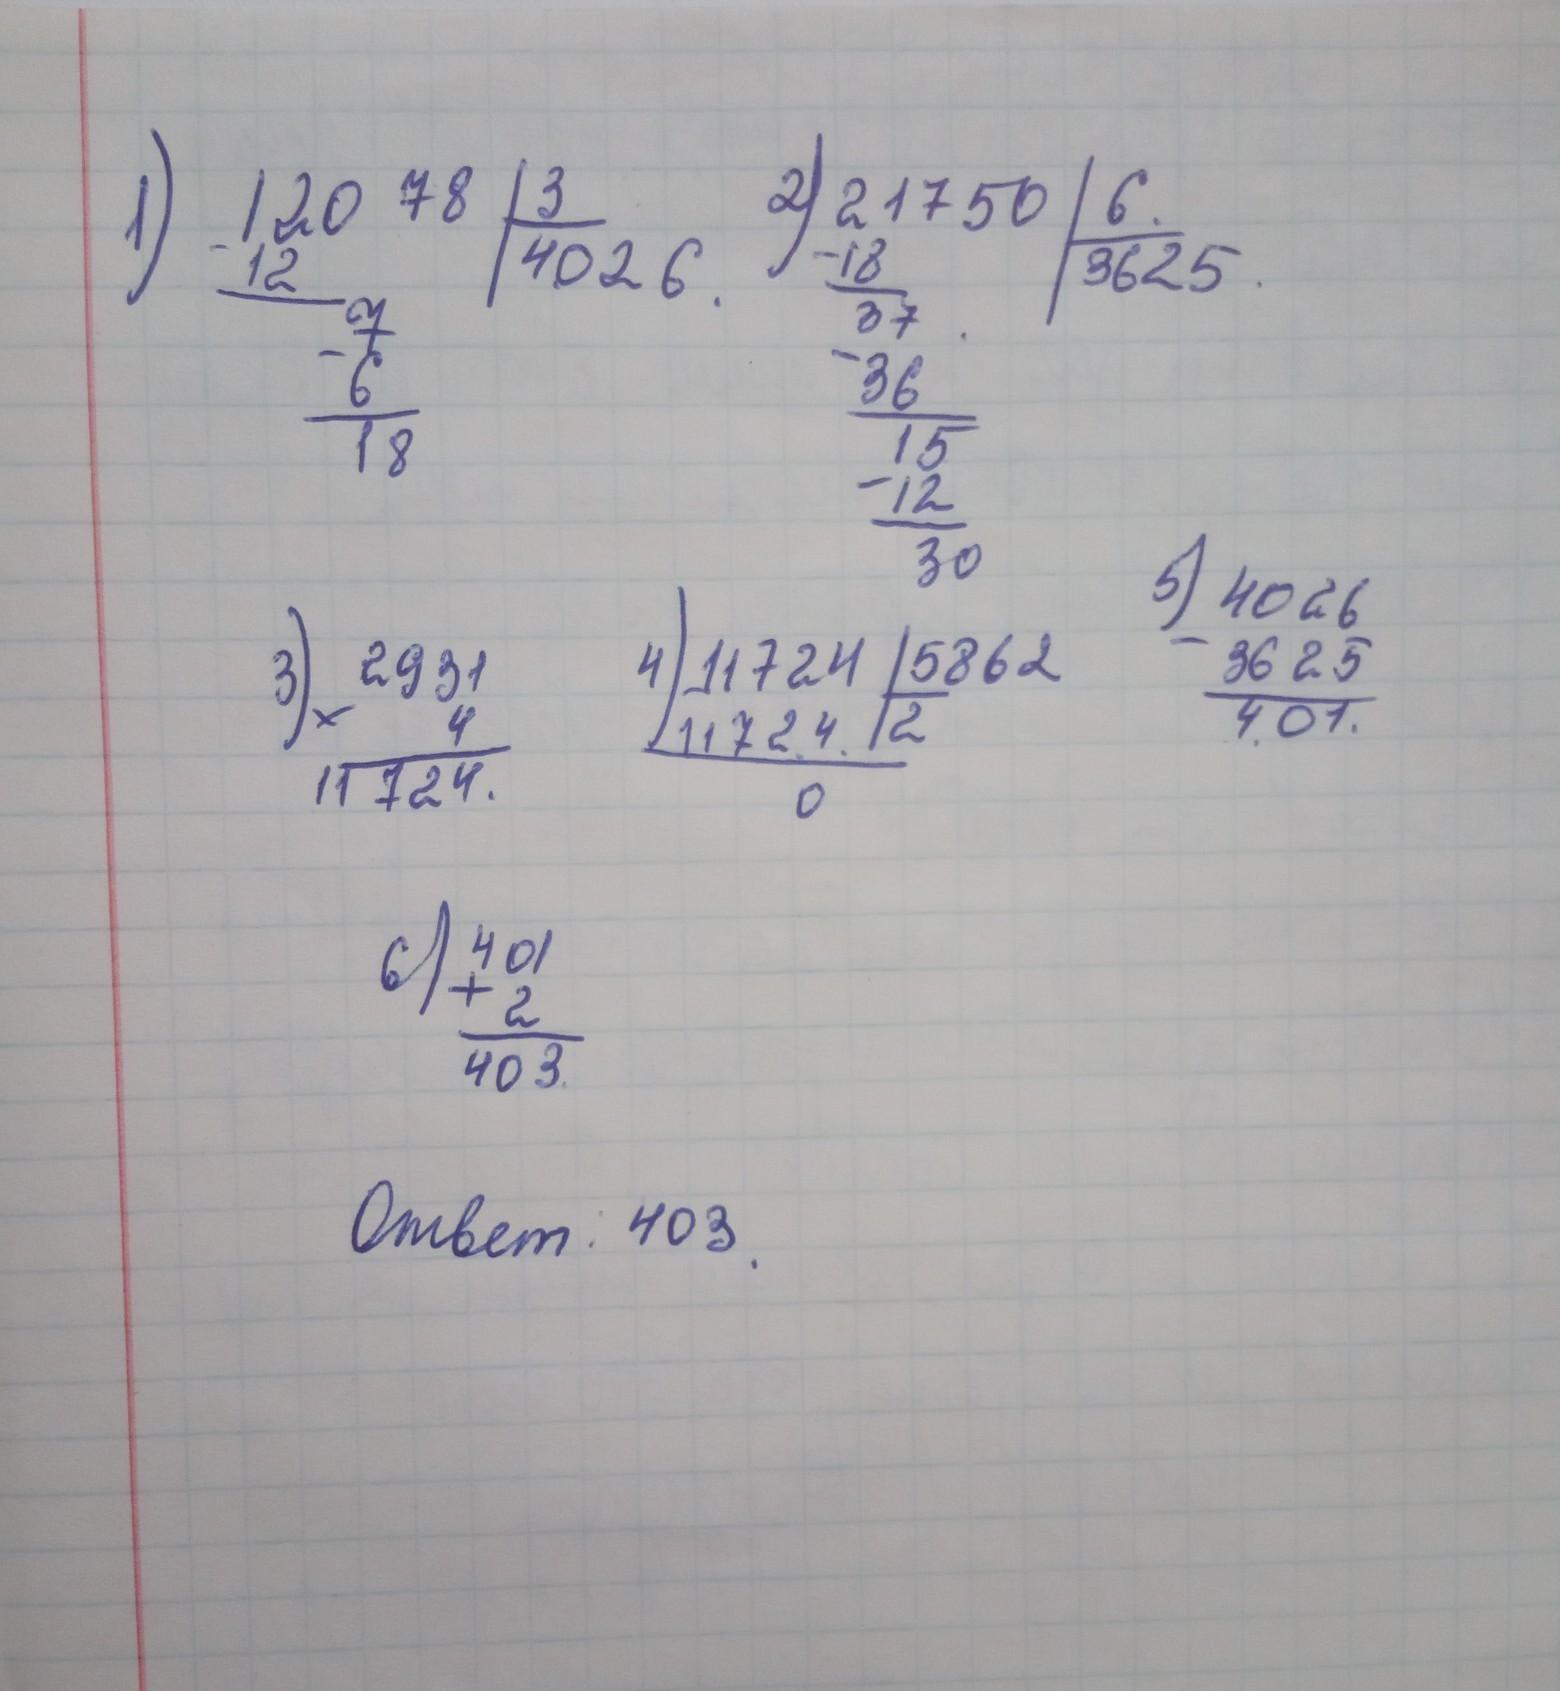 1) 12078 | 3
- 12 | 4026.
7
- 6
18
2) 21750 | 6.
- 18 | 3625.
37.
- 36
15
- 12
30
3) 2931
× 4
11724.
4) 11724 | 5862
11724. | 2
0
5) 4026
- 3625
401.
6) 401
+ 2
403.
Ответ: 403.